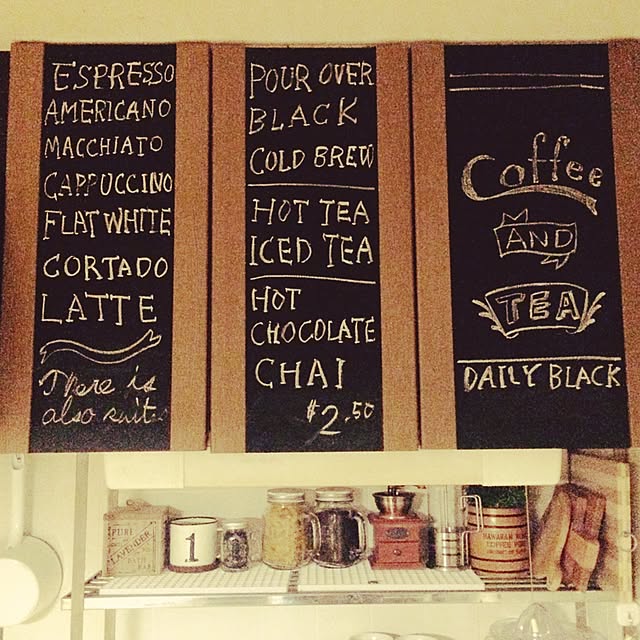 ESPRESSO
AMERICANO
MACCHIATO
CAPPUCCINO
FLAT WHITE
CORTADO
LATTE
There is
also suit.
POUR OVER
BLACK
COLD BREW
HOT TEA
ICED TEA
HOT
CHOCOLATE
CHAI
$2.50
Coffee
AND
TEA
DAILY BLACK
LAVENDER
1
HAWAIIAN
COFFEE